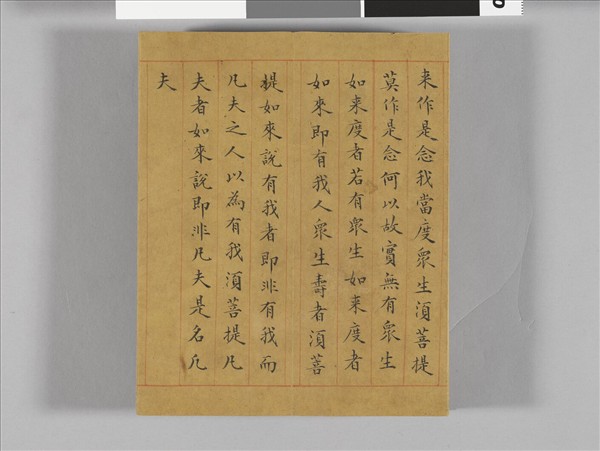 来作是念我當度眾生須菩提
莫作是念何以故實無有眾生
如来度者若有眾生如来度者
如來即有我人眾生壽者須菩
提如來說有我者即非有我而
凡夫之人以為有我須菩提凡
夫者如來說即非凡夫是名凡
夫